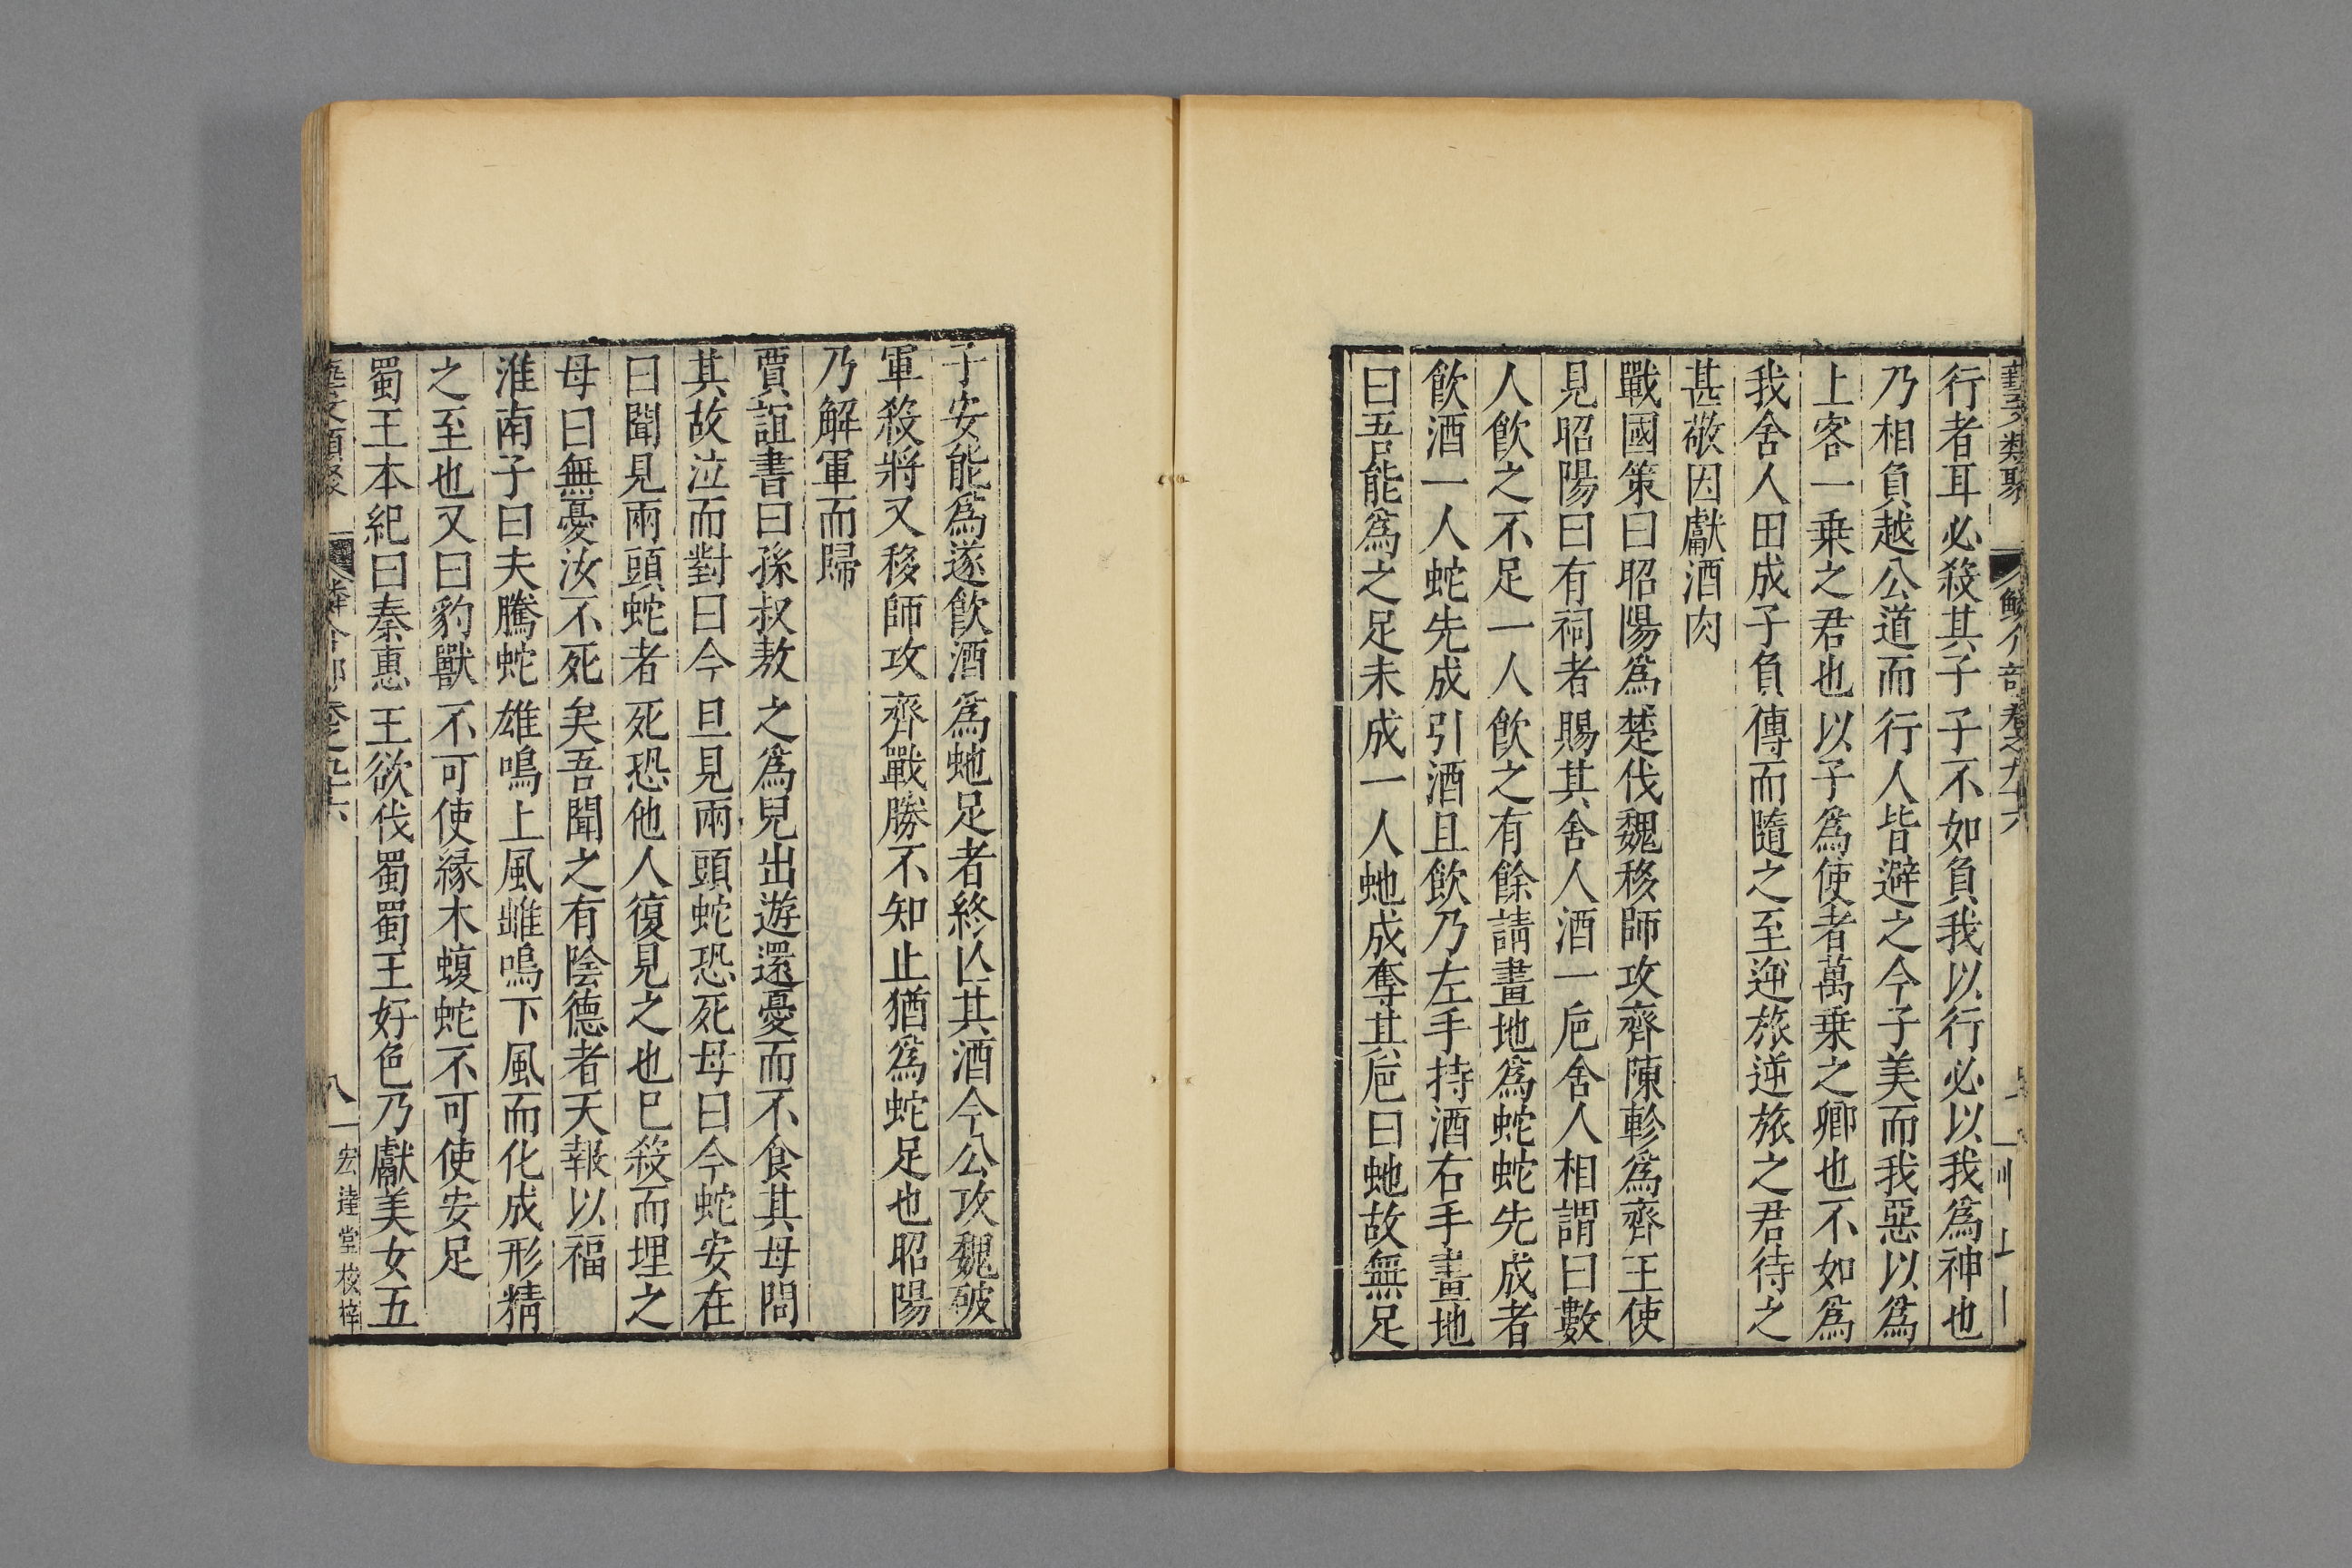 藝文類聚 鱗介部卷之九十六
行者耳必殺其子子不如負我以行必以我爲神也
乃相負越公道而行人皆避之今子美而我惡以爲
上客一乗之君也以子爲使者萬乗之卿也不如爲
我舍人田成子負傳而隨之至逆旅逆旅之君待之
甚敬因獻酒肉
戰國策曰昭陽爲楚伐魏移師攻齊陳軫爲齊王使
見昭陽曰有祠者賜其舍人酒一巵舍人相謂曰數
人飲之不足一人飲之有餘請畫地爲蛇蛇先成者
飲酒一人蛇先成引酒且飲乃左手持酒右手畫地
曰吾能爲之足未成一人虵成奪其巵曰虵故無足
子安能爲遂飲酒爲虵足者終亾其酒今公攻魏破
軍殺將又移師攻齊戰勝不知止猶爲蛇足也昭陽
乃解軍而歸
賈誼書曰孫叔敖之爲兒出遊還憂而不食其母問
其故泣而對曰今旦見兩頭蛇恐死母曰今蛇安在
曰聞見兩頭蛇者死恐他人復見之也巳殺而埋之
母曰無憂汝不死矣吾聞之有陰德者天報以福
淮南子曰夫騰蛇雄鳴上風雌鳴下風而化成形精
之至也又曰豹獸不可使緣木蝮蛇不可使安足
蜀王本紀曰秦惠王欲伐蜀蜀王好色乃獻美女五
藝文類聚 卷之九十六 八 宏達堂校梓